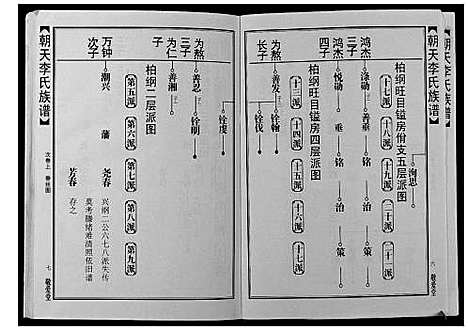 朝天李氏族谱
柏纲旺目镒房侑支五层派图
十七派
十八派
十九派
二十派
二十一派
洵思
鸿杰
三子
涤勋
善垂
铭
治
策
鸿杰
四子
悦勋
垂
铭
治
策
柏纲旺目镒房四层派图
十三派
十四派
十五派
十六派
十七派
为熬
长子
善发
铨翰
铨伐
敬爱堂
朝天李氏族谱
次卷上
七
敬爱堂
为熬
三子
善忍
铨明
铨虔
为仁
子
善湘
柏纲二层派图
第五派
第六派
第七派
第八派
第九派
万钟
次子
潮兴
藩
尧春
兴纲二公六七八派失传
莫考滕绪难清照依旧谱
存之
芳春